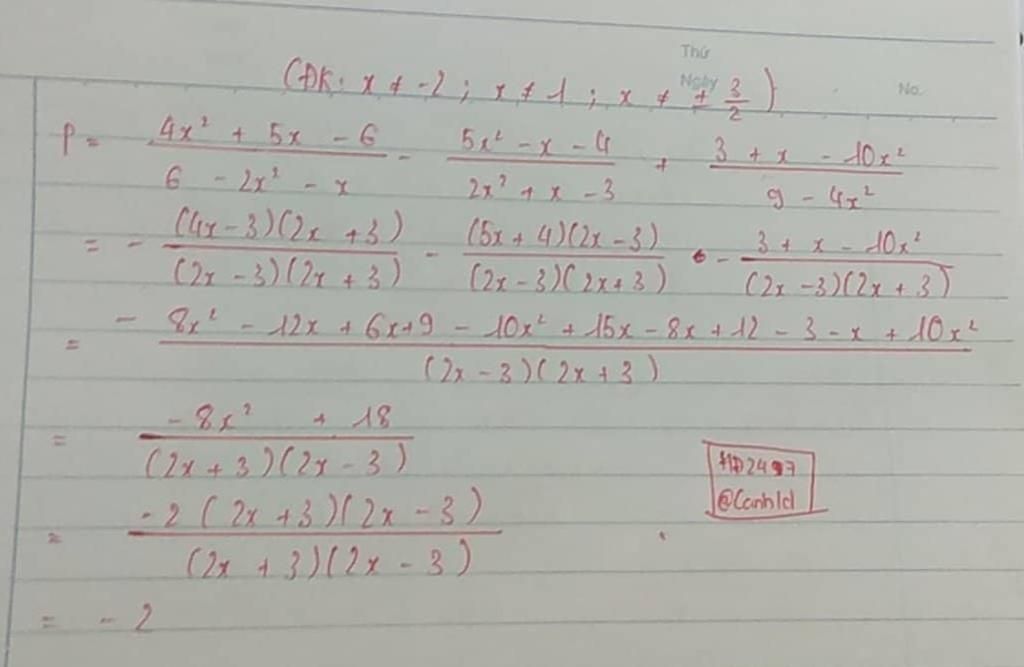 Thứ
Ngày
No.
(ĐK: x ≠ -2 ; x ≠ 1 ; x ≠ ± 3/2)
P = (4x² + 5x - 6)/(6 - 2x² - x) - (5x² - x - 4)/(2x² + x - 3) + (3 + x - 10x²)/(9 - 4x²)
= - ((4x - 3)(2x + 3))/((2x - 3)(2x + 3)) - ((5x + 4)(2x - 3))/((2x - 3)(2x + 3)) - (3 + x - 10x²)/((2x - 3)(2x + 3))
= (- 8x² - 12x + 6x + 9 - 10x² + 15x - 8x + 12 - 3 - x + 10x²)/((2x - 3)(2x + 3))
= (- 8x² + 18)/((2x + 3)(2x - 3))
= (- 2 (2x + 3)(2x - 3))/((2x + 3)(2x - 3))
= - 2